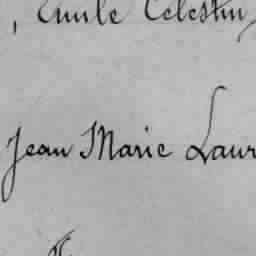 , Emile Celestin,
Jean Marie Laur